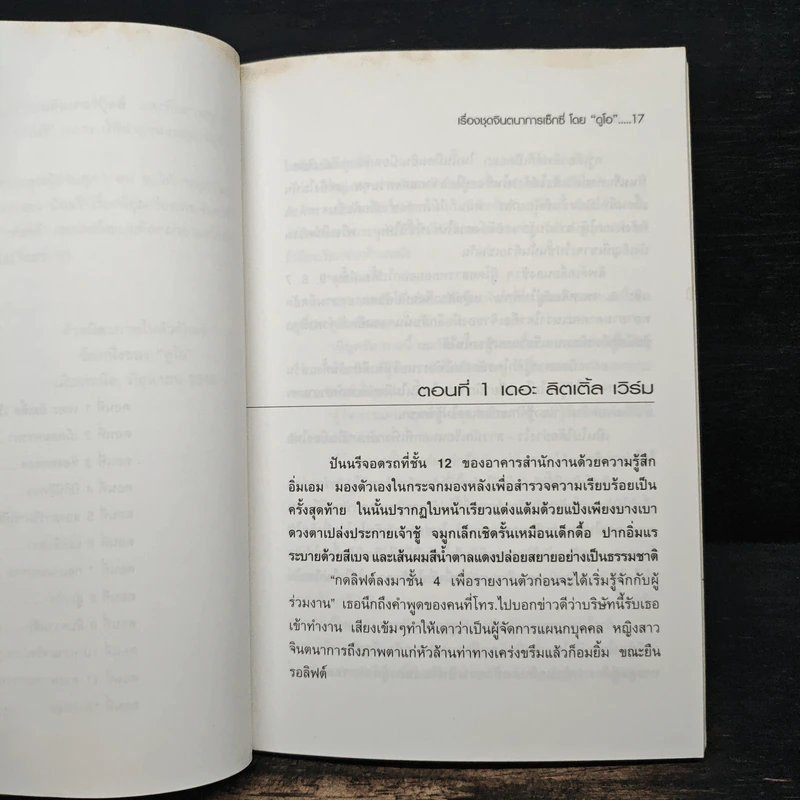 เรื่องชุดจินตนาการเซ็กซี่ โดย “ดูโอ”.....17
ตอนที่ 1 เดอะ ลิตเติ้ล เวิร์ม
ปันนรีจอดรถที่ชั้น 12 ของอาคารสำนักงานด้วยความรู้สึก
อิ่มเอม มองตัวเองในกระจกมองหลังเพื่อสำรวจความเรียบร้อยเป็น
ครั้งสุดท้าย ในนั้นปรากฏใบหน้าเรียวแต่งแต้มด้วยแป้งเพียงบางเบา
ดวงตาเปล่งประกายเจ้าชู้ จมูกเล็กเชิดรั้นเหมือนเด็กดื้อ ปากอิ่มแร
ระบายด้วยสีเบจ และเส้นผมสีน้ำตาลแดงปล่อยสยายอย่างเป็นธรรมชาติ
“กดลิฟต์ลงมาชั้น 4 เพื่อรายงานตัวก่อนจะได้เริ่มรู้จักกับผู้
ร่วมงาน” เธอนึกถึงคำพูดของคนที่โทร.ไปบอกข่าวดีว่าบริษัทนี้รับเธอ
เข้าทำงาน เสียงเข้มๆทำให้เดาว่าเป็นผู้จัดการแผนกบุคคล หญิงสาว
จินตนาการถึงภาพตาแก่หัวล้านท่าทางเคร่งขรึมแล้วก็อมยิ้ม ขณะยืน
รอลิฟต์